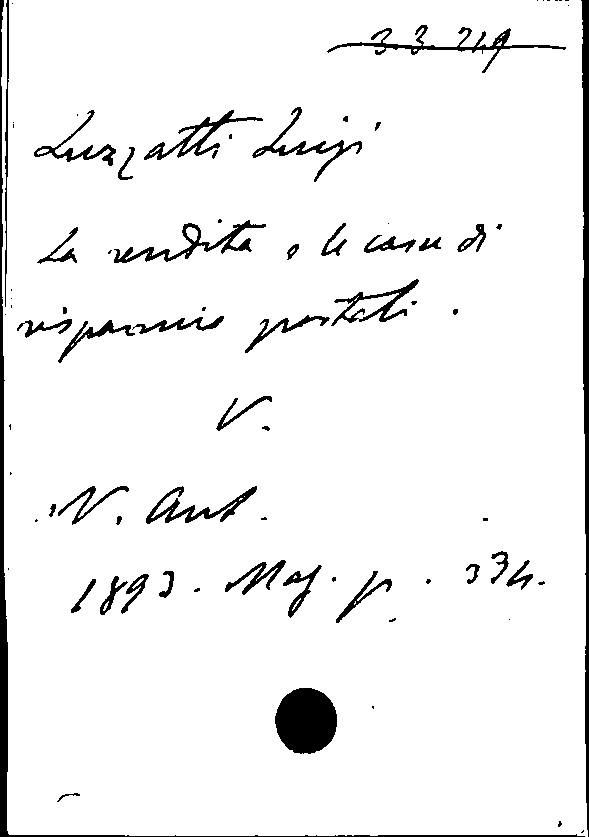 3.3.249
Luzzatti Luigi
La rendita e le casse di
risparmio postali.
V.
N. Ant.
1893. Mag. p. 334.